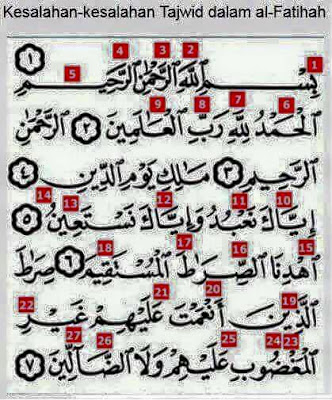 Kesalahan-kesalahan Tajwid dalam al-Fatihah
1 2 3 4 5
بِسْمِ ٱللَّهِ ٱلرَّحْمَٰنِ ٱلرَّحِيمِ ١
6 7 8 9
ٱلْحَمْدُ لِلَّهِ رَبِّ ٱلْعَالَمِينَ ٢ ٱلرَّحْمَٰنِ
ٱلرَّحِيمِ ٣ مَالِكِ يَوْمِ ٱلدِّينِ ٤
10 11 12 13 14
إِيَّاكَ نَعْبُدُ وَإِيَّاكَ نَسْتَعِينُ ٥
15 16 17 18
ٱهْدِنَا ٱلصِّرَاطَ ٱلْمُسْتَقِيمَ ٦ صِرَاطَ
19 20 21 22
ٱلَّذِينَ أَنْعَمْتَ عَلَيْهِمْ غَيْرِ
23 24 25 26 27
ٱلْمَغْضُوبِ عَلَيْهِمْ وَلَا ٱلضَّالِّينَ ٧